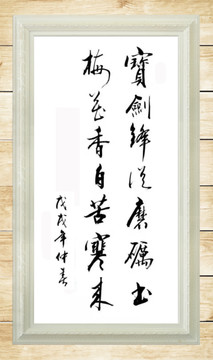 寶劍鋒從磨礪出
梅花香自苦寒来
戊戌年仲春